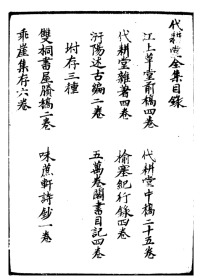 代耕堂全集目錄
江上草堂前稿四卷　代耕堂中稿二十五卷
代耕堂雜著四卷　榆塞紀行錄四卷
汧陽述古編二卷　五萬卷閣書目記四卷
坿存三種
雙桐書屋賸稿二卷　味蔗軒詩鈔一卷
乖崖集存六卷